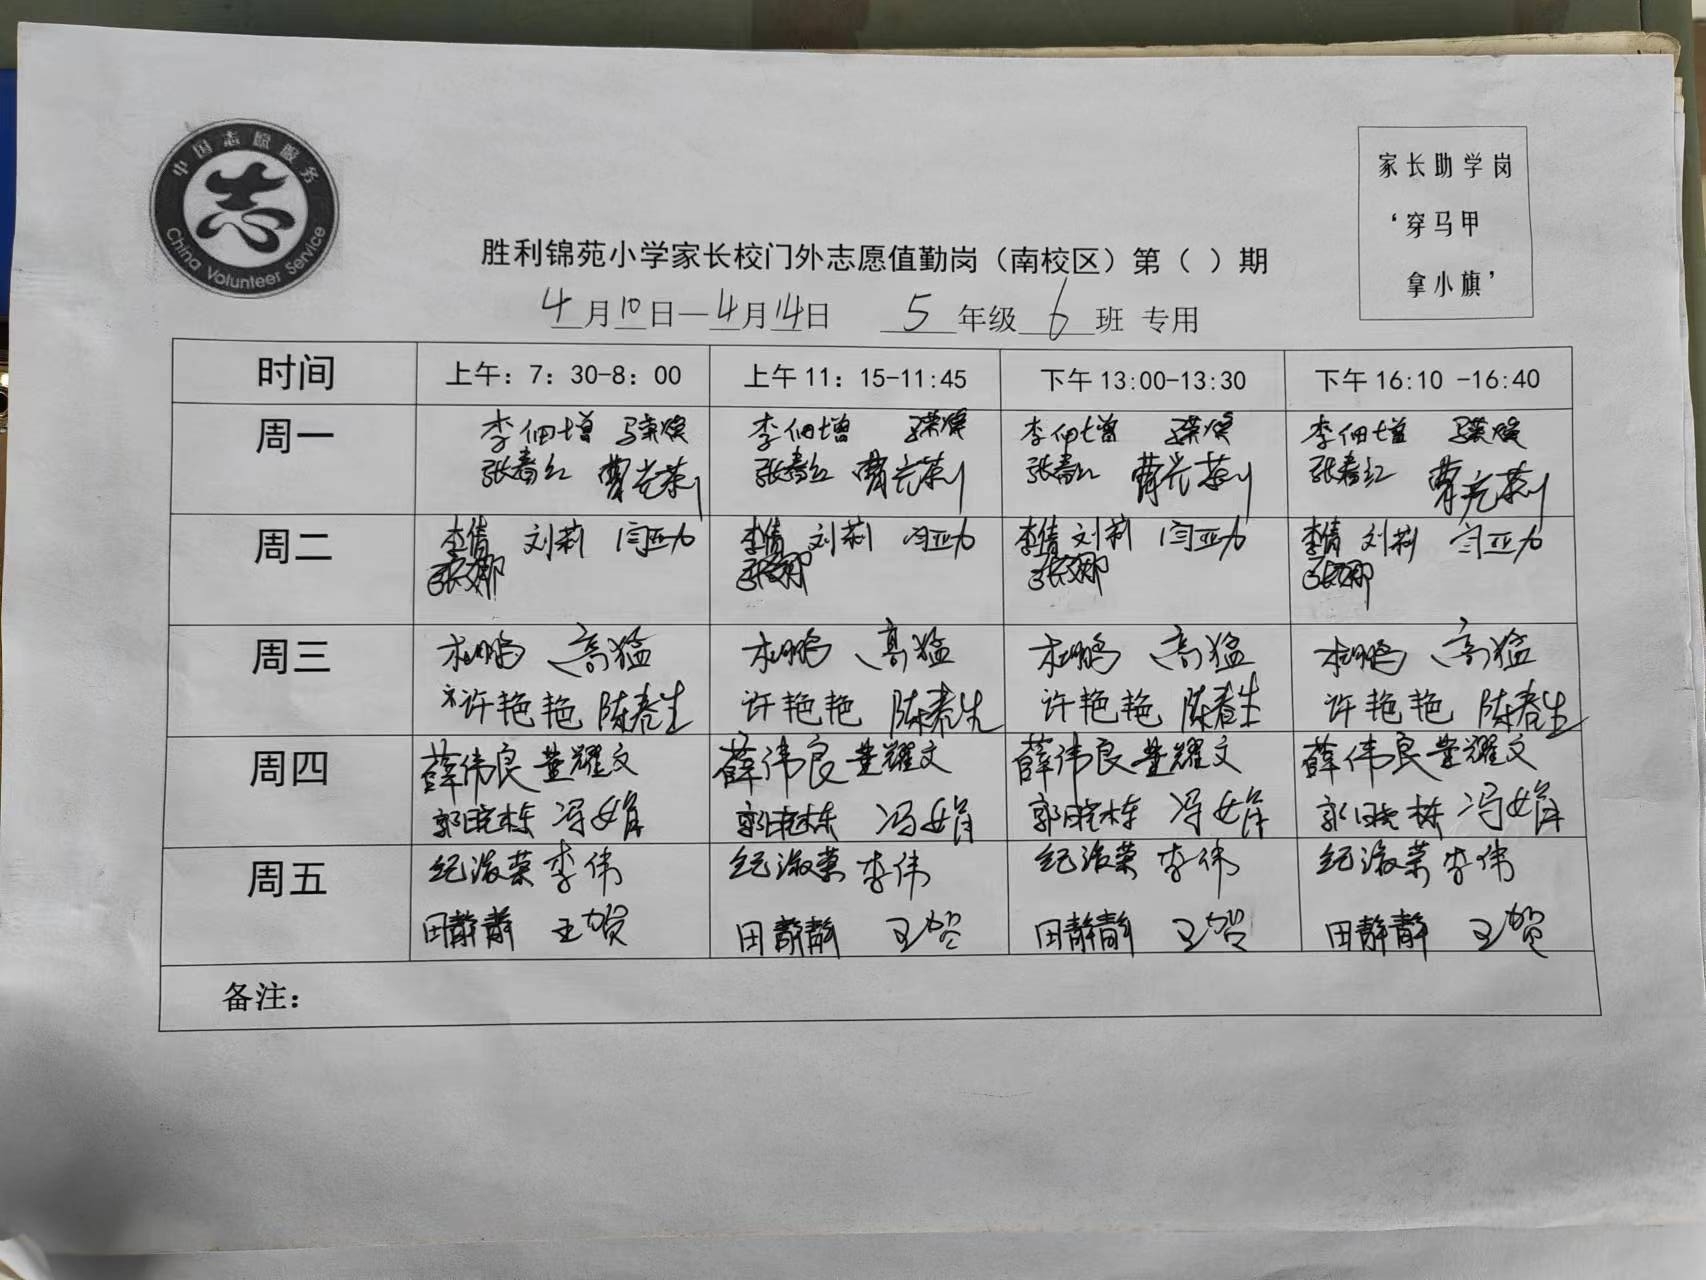 中国志愿服务
志
China Volunteer Service
家长助学岗
‘穿马甲
拿小旗’
胜利锦苑小学家长校门外志愿值勤岗（南校区）第（ ）期
4月10日—4月14日 5年级6班 专用
时间 上午：7：30-8：00 上午11：15-11:45 下午13:00-13:30 下午16:10 -16:40
周一 李佃增 李佃增 李佃增 李佃增
张春红 曹光荣 张春红 曹光荣 张春红 曹光荣 张春红 曹光荣
周二 李倩 刘莉 闫亚力 李倩 刘莉 闫亚力 李倩 刘莉 闫亚力 李倩 刘莉 闫亚力
张娜 张娜 张娜 张娜
周三 杜鹏 高猛 杜鹏 高猛 杜鹏 高猛 杜鹏 高猛
许艳艳 陈春生 许艳艳 陈春生 许艳艳 陈春生 许艳艳 陈春生
周四 薛伟良 董耀文 薛伟良 董耀文 薛伟良 董耀文 薛伟良 董耀文
郭晓栋 冯女肖 郭晓栋 冯女肖 郭晓栋 冯女肖 郭晓栋 冯女肖
周五 纪淑荣 李伟 纪淑荣 李伟 纪淑荣 李伟 纪淑荣 李伟
田静静 王贺 田静静 王贺 田静静 王贺 田静静 王贺
备注：